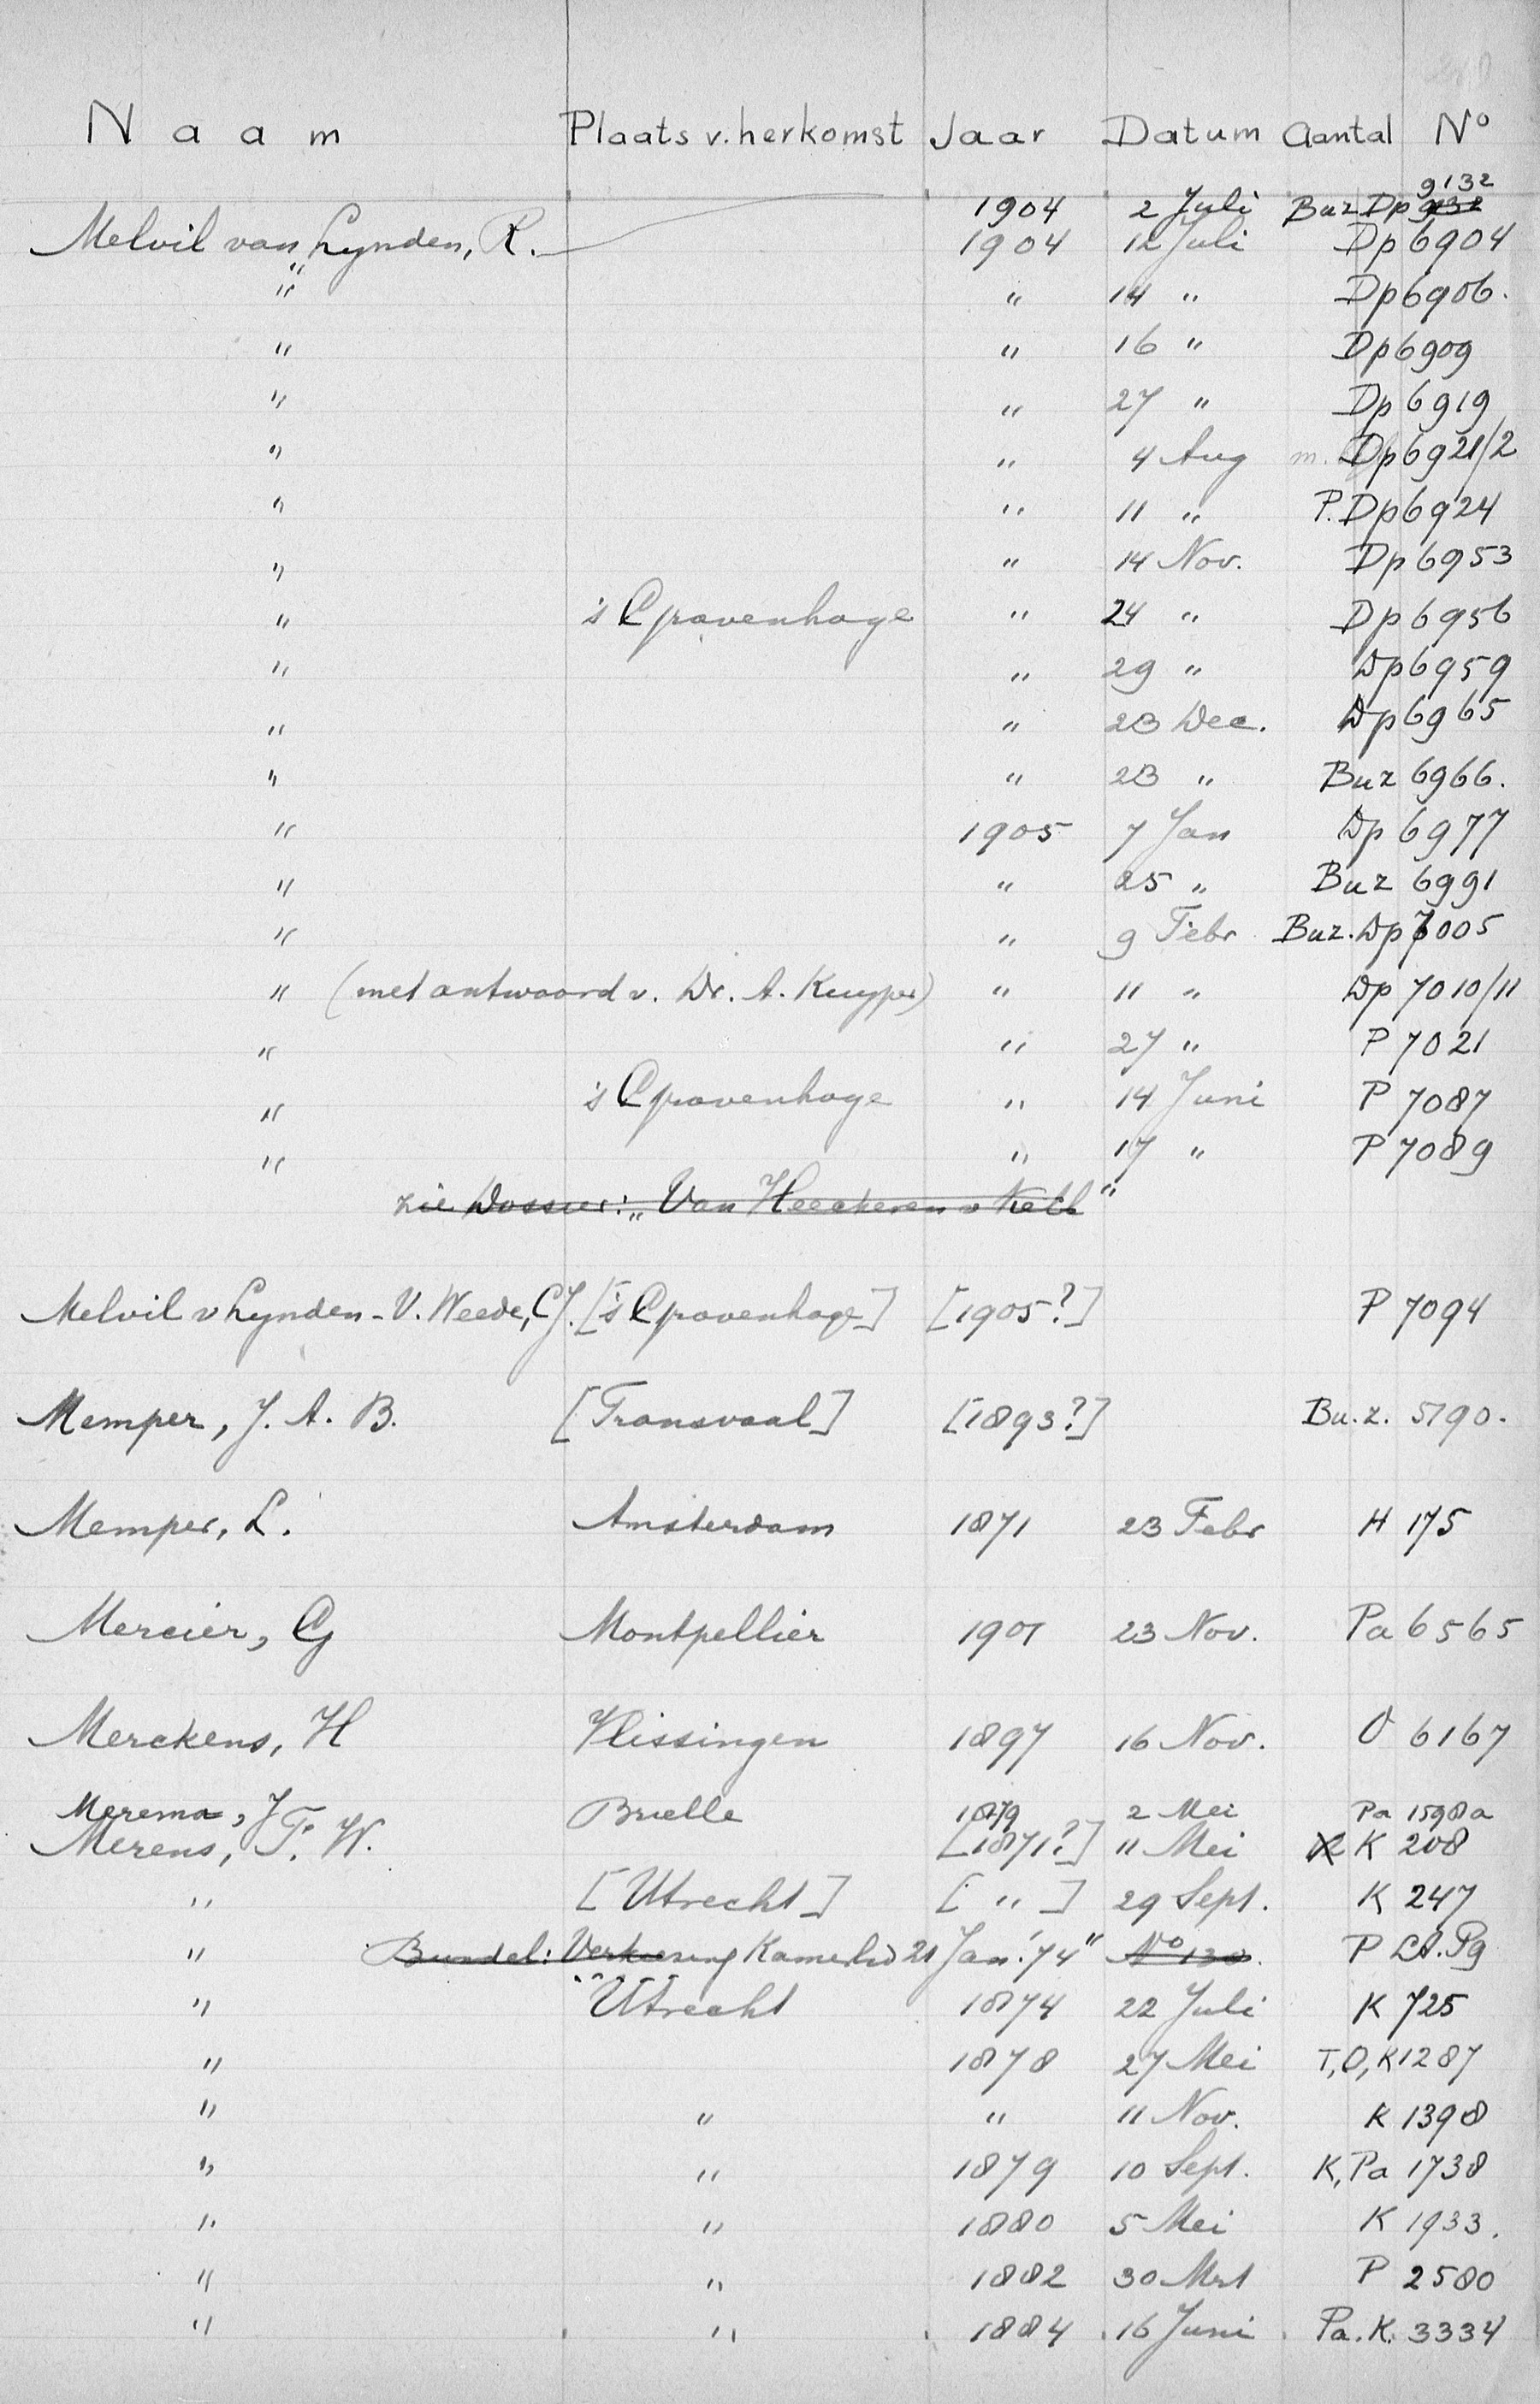 Naam Plaats v. herkomst Jaar Datum Aantal No
1904 2 Juli Buz Dp 9132
Melvil van Lynden, R. 1904 12 Juli Dp 6904
" " 14 " Dp 6906.
" " 16 " Dp 6909
" " 27 " Dp 6919
" " 4 Aug m. Dp 6921/2
" " 11 " P. Dp 6924
" " 14 Nov. Dp 6953
" 's Gravenhage " 24 " Dp 6956
" " 29 " Dp 6959
" " 23 Dec. Dp 6965
" " 23 " Buz 6966.
" 1905 7 Jan Dp 6977
" " 25 " Buz 6991
" " 9 Febr Buz. Dp 7005
" (met antwoord v. Dr. A. Kuyper) " 11 " Dp 7010/11
" " 27 " P 7021
" 's Gravenhage " 14 Juni P 7087
" " 17 " P 7089
zie Dossier: „Van Heeckeren v Kell"
Melvil v Lynden - V. Weede, C.J. ['s Gravenhage] [1905?] P 7094
Memper, J. A. B. [Transvaal] [1893?] Bu. z. 5190.
Memper, L. Amsterdam 1871 23 Febr H 175
Mercier, G Montpellier 1901 23 Nov. Pa 6565
Merckens, H Vlissingen 1897 16 Nov. O 6167
Merema, J Brielle 1879 2 Mei Pa 1598a
Merens, F. W. [1871?] 11 Mei K 208
" [Utrecht] [ " ] 29 Sept. K 247
" Bundel: Verkiezing Kamerlid 21 Jan. '74" No 130. P Lt. Pg
" Utrecht 1874 22 Juli K 725
" 1878 27 Mei T, O, K 1287
" " " 11 Nov. K 1398
" " 1879 10 Sept. K, Pa 1738
" " 1880 5 Mei K 1933.
" " 1882 30 Mrt P 2580
" " 1884 16 Juni Pa. K. 3334